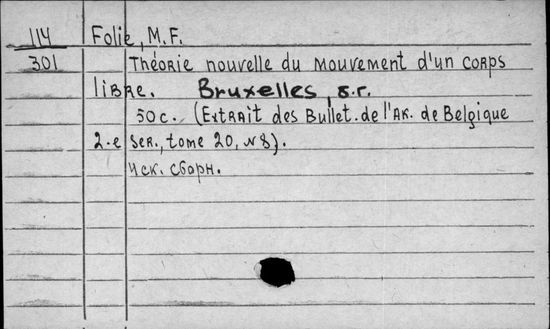 114 Folie, M.F.
301 Théorie nouvelle du mouvement d'un corps
libre. Bruxelles, s.r.
50 c. (Extrait des Bullet. de l'Ak. de Belgique
2-e Ser., tome 20, N 8).
Иск. сборн.